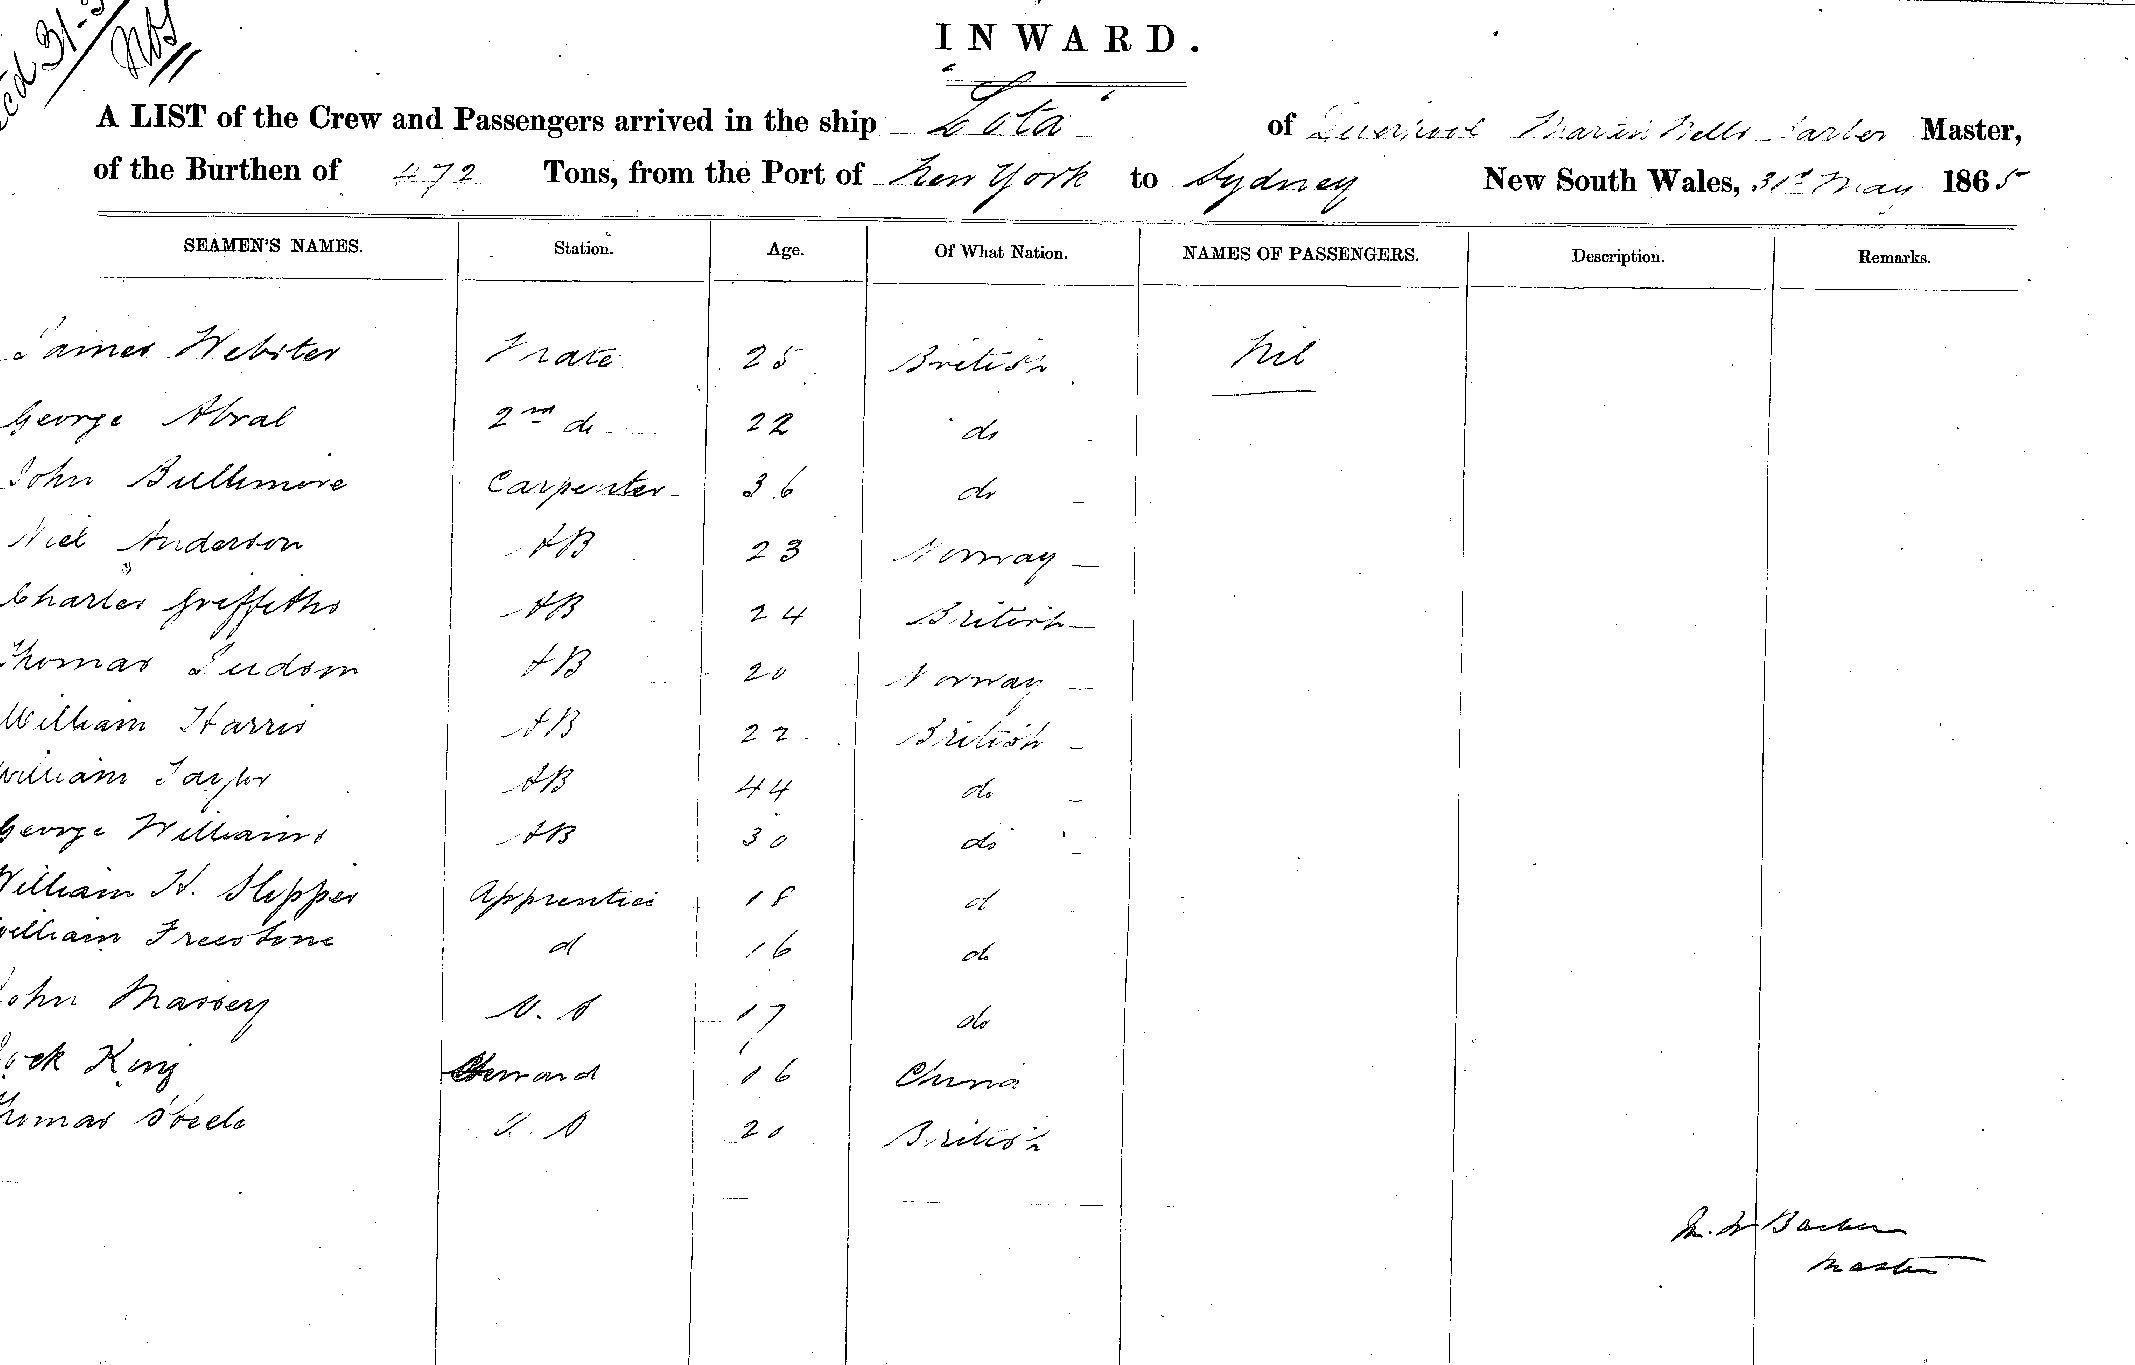 INWARD.
A LIST of the Crew and Passengers arrived in the ship Lota of Liverpool Master,
of the Burthen of 472 Tons, from the Port of New York to Sydney New South Wales, 31st May 1865
SEAMEN'S NAMES. Station. Age. Of What Nation. NAMES OF PASSENGERS. Description. Remarks.
James Webster Mate 25 British Nil
George 2nd do 22 do
John Bullimore Carpenter 36 do
Niel Anderson AB 23 Norway
Charles Griffiths AB 24 British
Thomas AB 20 Norway
William Harris AB 22 British
William Taylor AB 44 do
George Williams AB 30 do
William H. Slipper Apprentice 18 d
William Freestone d 16 do
John Massey 17 do
King Steward 16 China
Thomas Steele 20 British
M. W Barber
Master